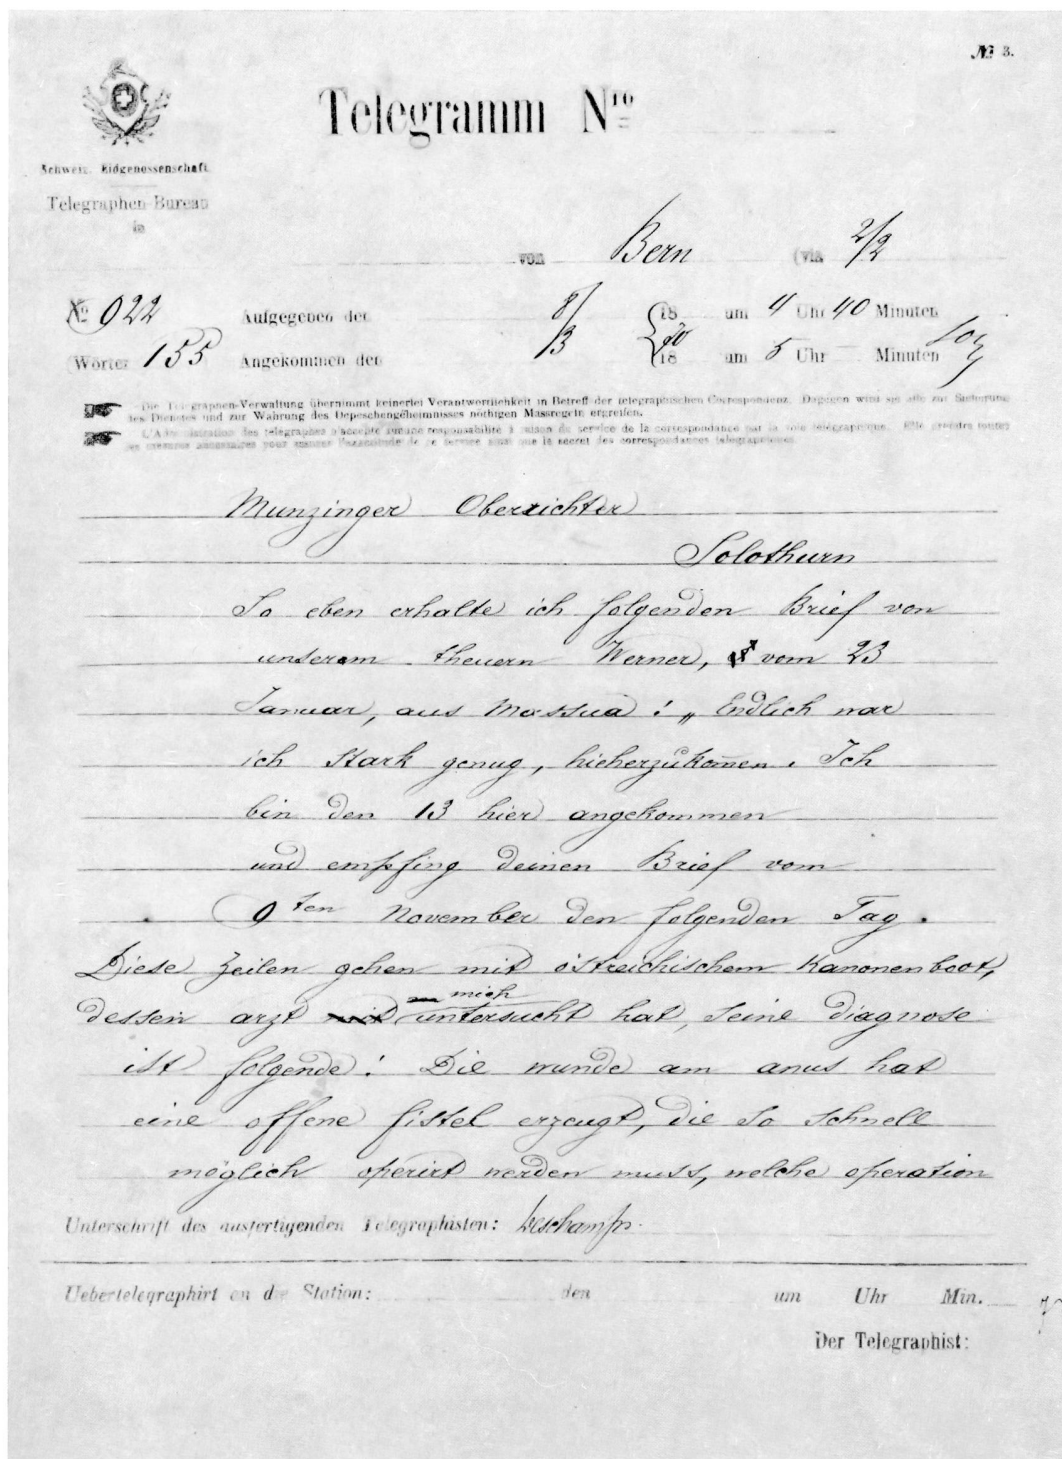 № 3.
Telegramm Nro
Schweiz. Eidgenossenschaft.
Telegraphen-Bureau
in
von Bern (via 2/2
No 922 Aufgegeben den 8/ 18 um 4 Uhr 40 Minuten
Wörter 155 Angekommen den /3 70 18 um 5 Uhr — Minuten
Die Telegraphen-Verwaltung übernimmt keinerlei Verantwortlichkeit in Betreff der telegraphischen Correspondenz. Dagegen wird sie alle zur Sicherung
des Dienstes und zur Wahrung des Depeschengeheimnisses nöthigen Massregeln ergreifen.
L'Administration des télégraphes n'accepte aucune responsabilité à raison du service de la correspondance par la voie télégraphique. Elle prendra toutes
les mesures nécessaires pour assurer l'exactitude de ce service ainsi que le secret des correspondances télégraphiques.
Munzinger Oberrichter
Solothurn
So eben erhalte ich folgenden Brief von
unserem theuern Werner, vom 23
Januar, aus Massua: „Endlich war
ich stark genug, hieherzukom̅en. Ich
bin den 13 hier angekommen
und empfing deinen Brief vom
9ten November den folgenden Tag.
Diese Zeilen gehen mit östreichischem Kanonenboot,
mich
dessen arzt untersucht hat, seine diagnose
ist folgende: Die wunde am anus hat
eine offene fistel erzeugt, die so schnell
möglich operirt werden muss, welche operation
Unterschrift des ausfertigenden Telegraphisten: Deschamps.
Uebertelegraphirt an die Station: den um Uhr Min.
Der Telegraphist: